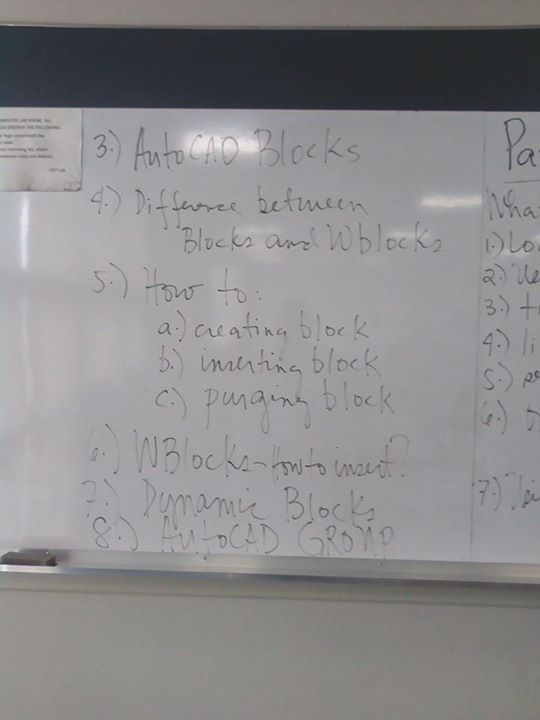 3.) AutoCAD Blocks
4.) Difference between
Blocks and Wblocks
5.) How to:
a.) creating block
b.) inserting block
c.) purging block
6.) WBlocks-How to insert?
7.) Dynamic Blocks
8.) AutoCAD GROUP
Pa
Wha
1.) Lo
2.) Ue
3.) t
4.) li
5.)
6.)
7.)